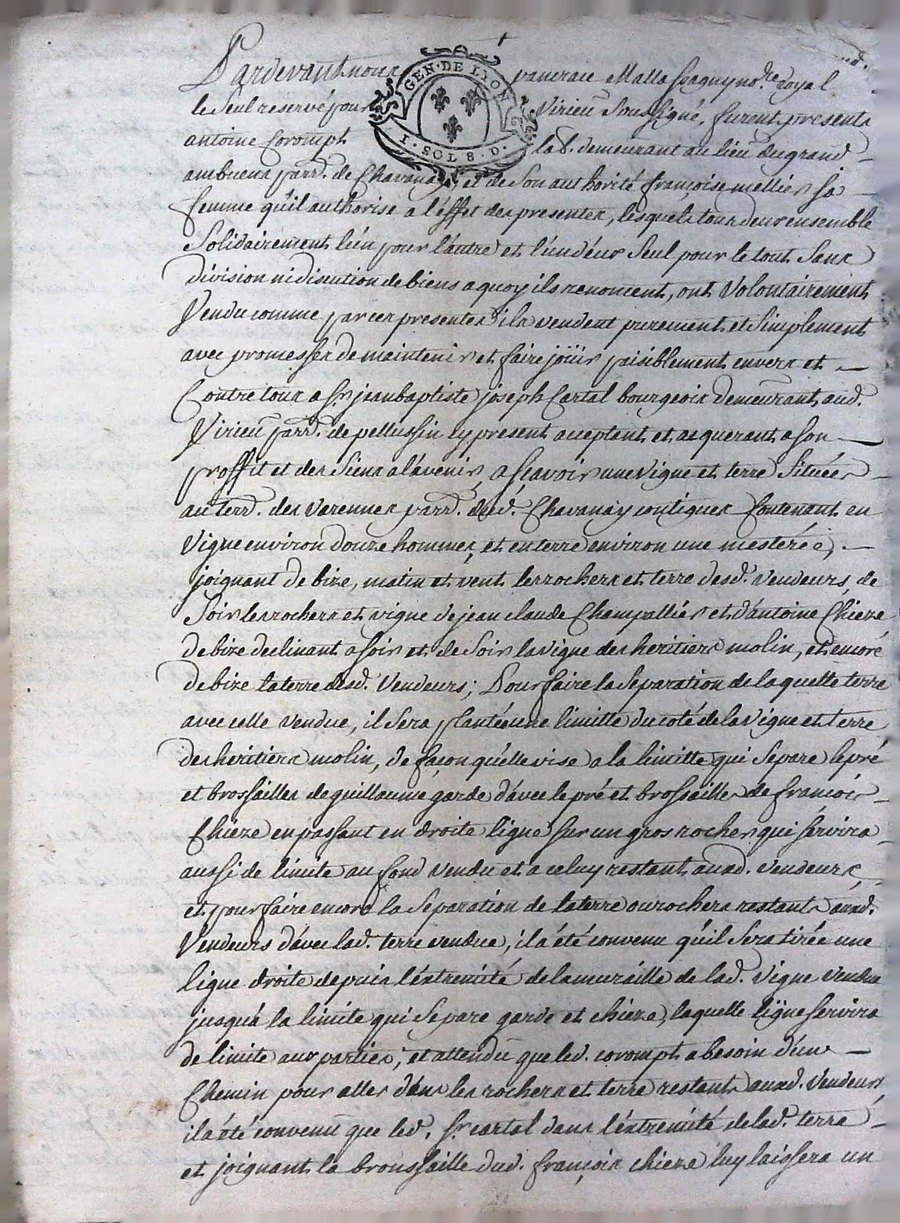 Pardevant nous pancrace Mallassagny no.re royal
GEN · DE LYON
1 · SOL 8 · D ·
le seul reservé pour Virieu soussigné, furent presents
antoine Corompt lab. demeurant au lieu du grand
ambuent parr. de Chavanay et de son authorité françoise mellier sa
femme qu'il authorise a l'effet des presentes, lesquels tous deux ensemble
solidairement l'un pour l'autre et l'un d'eux seul pour le tout sans
division ni discution de biens a quoy ils renoncent, ont Volontairement
Vendu comme par ces presentes ils vendent purement et simplement
avec promesses de maintenir et faire joüir paisiblement envers et
Contre tous a Sr. jean baptiste joseph Cartal bourgeois demeurant aud.
Virieu parr. de pellussin icy present acceptant et acquerant a son
proffit et des siens a l'avenir, a scavoir une vigne et terre située
au terr. des varennes parr. dud. Chavanay contigues Contenant en
vigne environ douze hommes, et en terre environ une mesterée,
joignant de bize, matin et vent les rochers et terre desd. Vendeurs de
soir les rochers et vigne de jean claude Champallier et d'antoine Chieze
de bize declinant a soir et de soir la vigne des heritiers molin, et encore
de bize la terre desd. Vendeurs; Pour faire la separation de laquelle terre
avec celle vendue, il sera plantée une limitte du coté de la vigne et terre
des heritiers molin, de façon quelle vise a la limitte qui separe le pré
et brossailles de guillaume garde d'avec le pré et brossailles de françois
Chieze en passant en droite ligne sur un gros rocher qui servira
aussi de limite au fond vendu et a celuy restant auxd. Vendeurs,
et pour faire encore la separation de la terre ou rochers restant auxd.
Vendeurs d'avec lad. terre vendue, il a été convenu qu'il sera tirée une
ligne droite depuis l'extremité de la muraille de lad. vigne vendue
jusqu'a la limite qui separe garde et chieze, laquelle ligne servira
de limite aux parties; et attendu que led. corompt a besoin d'un
Chemin pour aller dans les rochers et terre restant auxd. Vendeurs
il a été convenu que led. Sr. cartal dans l'extremité de lad. terre
et joignant la broussaille dud. françois chieze luy laissera un